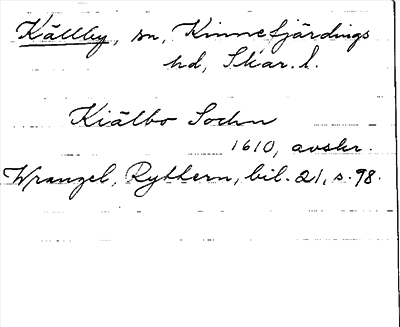 Källby, sn, Kinnefjärdings
hd, Skar. l.
Kiälbo Sochn
1610, avskr.
Wrangel, Ryttern, bil. 21, s. 98.